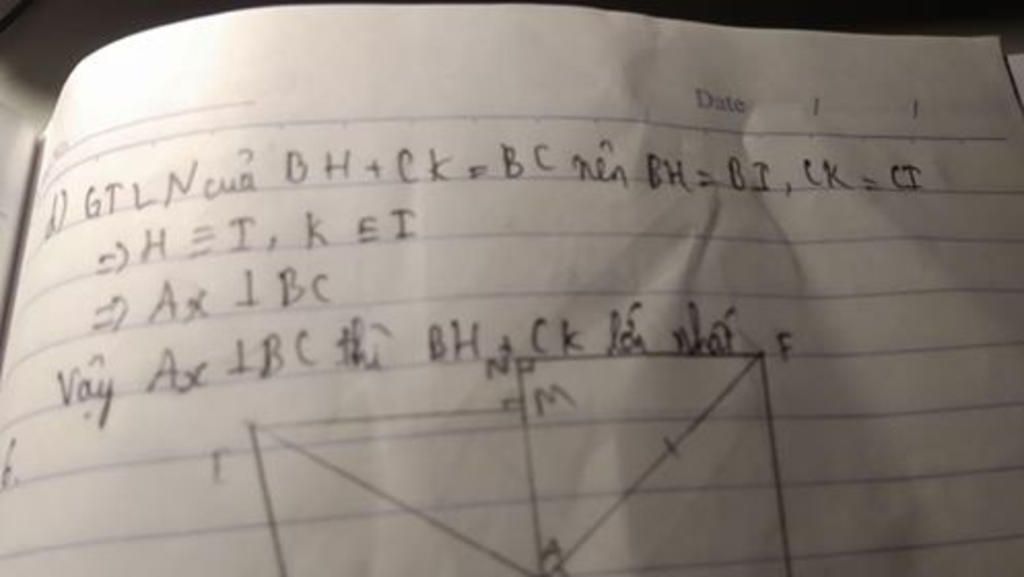 Date / /
d) GTLN của BH + CK = BC nên BH = BI, CK = CI
=> H ≡ I, K ≡ I
=> Ax ⊥ BC
Vậy Ax ⊥ BC thì BH + CK lớn nhất
N F
M
A